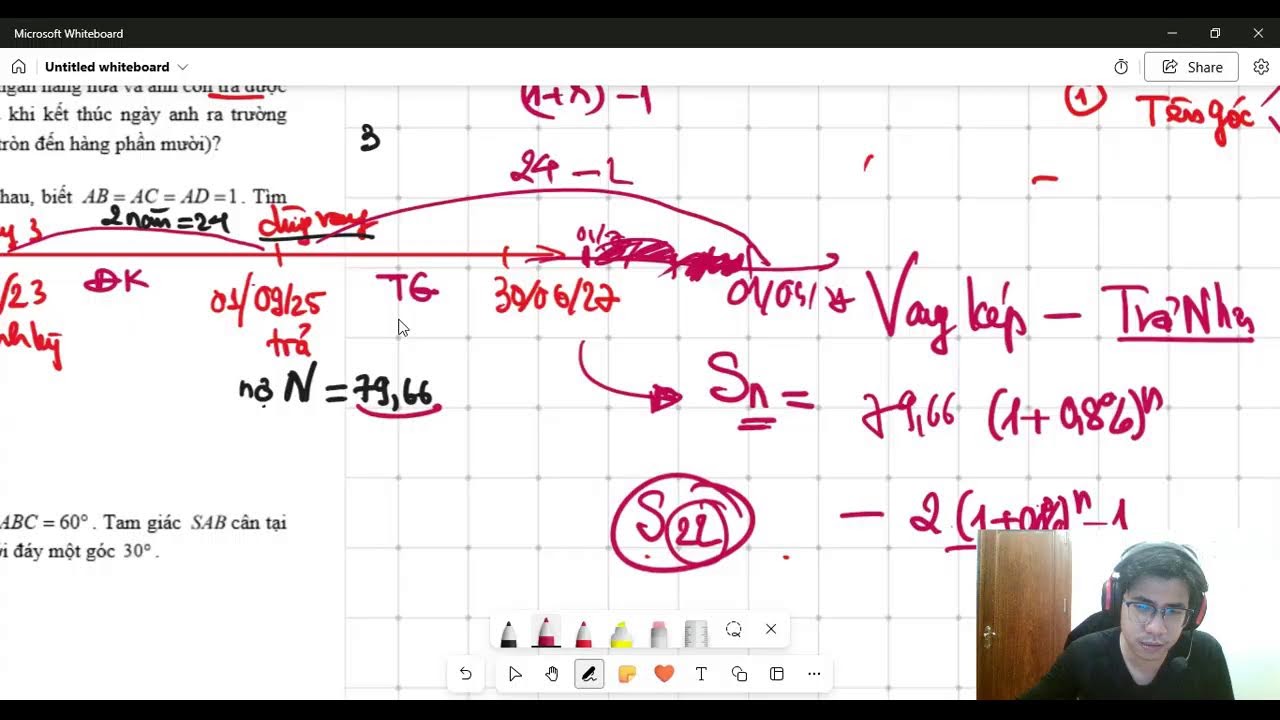 Microsoft Whiteboard
Untitled whiteboard
Share
ngân hàng nữa và anh còn trả được
khi kết thúc ngày anh ra trường
tròn đến hàng phần mười)?
hau, biết AB = AC = AD = 1. Tìm
(1+r) - 1
1 Tiền gốc
3
24 - 2
3 2 năm = 24 dừng vay
01/
/23 ĐK 01/09/25 TG 30/06/27
trả
nợ N = 79,66
Vay kép - Trả Như
Sn = 79,66 (1 + 0,8%)^n
S22 - 2 (1+0,8%)^n - 1
ABC = 60°. Tam giác SAB cân tại
i đáy một góc 30°.
T